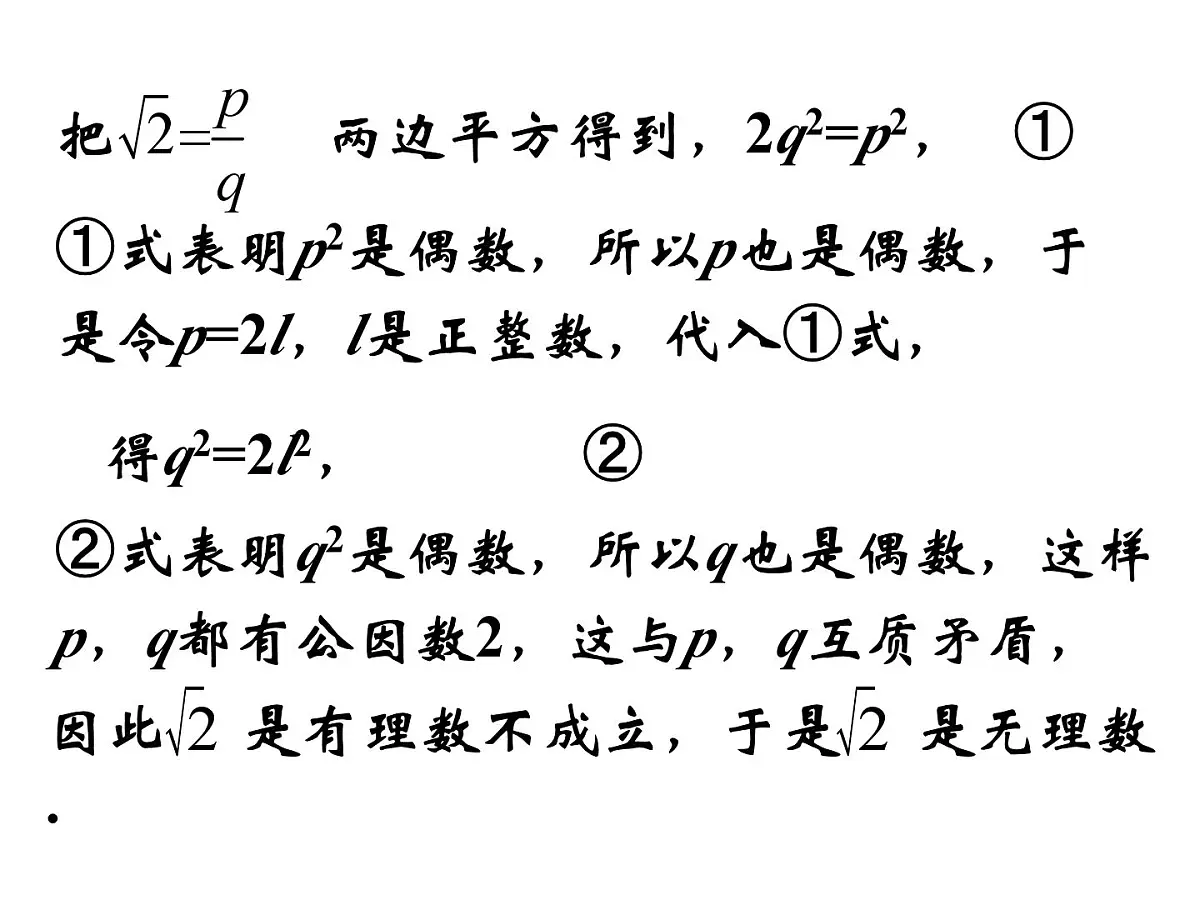 把√2=p/q 两边平方得到，2q²=p²， ①
①式表明p²是偶数，所以p也是偶数，于
是令p=2l，l是正整数，代入①式，
得q²=2l²， ②
②式表明q²是偶数，所以q也是偶数，这样
p，q都有公因数2，这与p，q互质矛盾，
因此√2 是有理数不成立，于是√2 是无理数
.